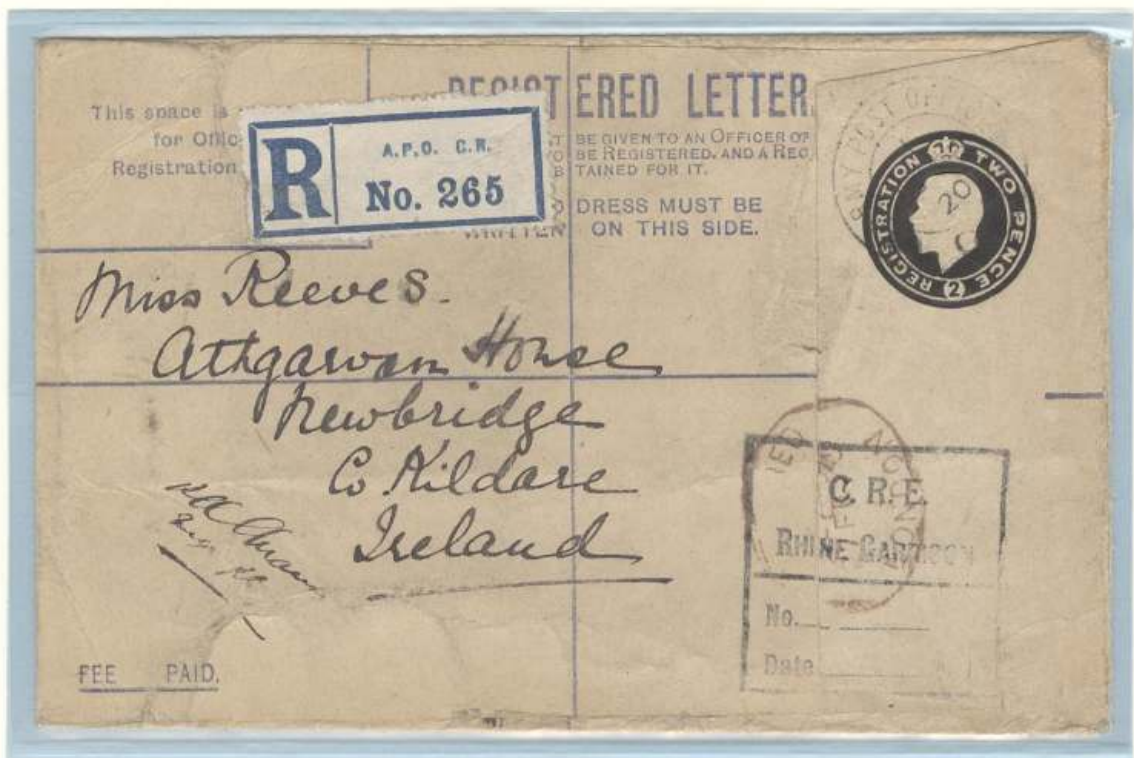 REGISTERED LETTER.
This space is
for Offic
Registration
T BE GIVEN TO AN OFFICER OF
O BE REGISTERED, AND A REC
BTAINED FOR IT.
DRESS MUST BE
WRITTEN ON THIS SIDE.
R
A.P.O. C.R.
No. 265
ARMY POST OFFICE
20
REGISTRATION TWO PENCE (2)
Miss Reeves.
Athgarvan House
Newbridge
Co Kildare
Ireland
C. R. E.
RHINE GARRISON
No.
Date
FEE PAID.